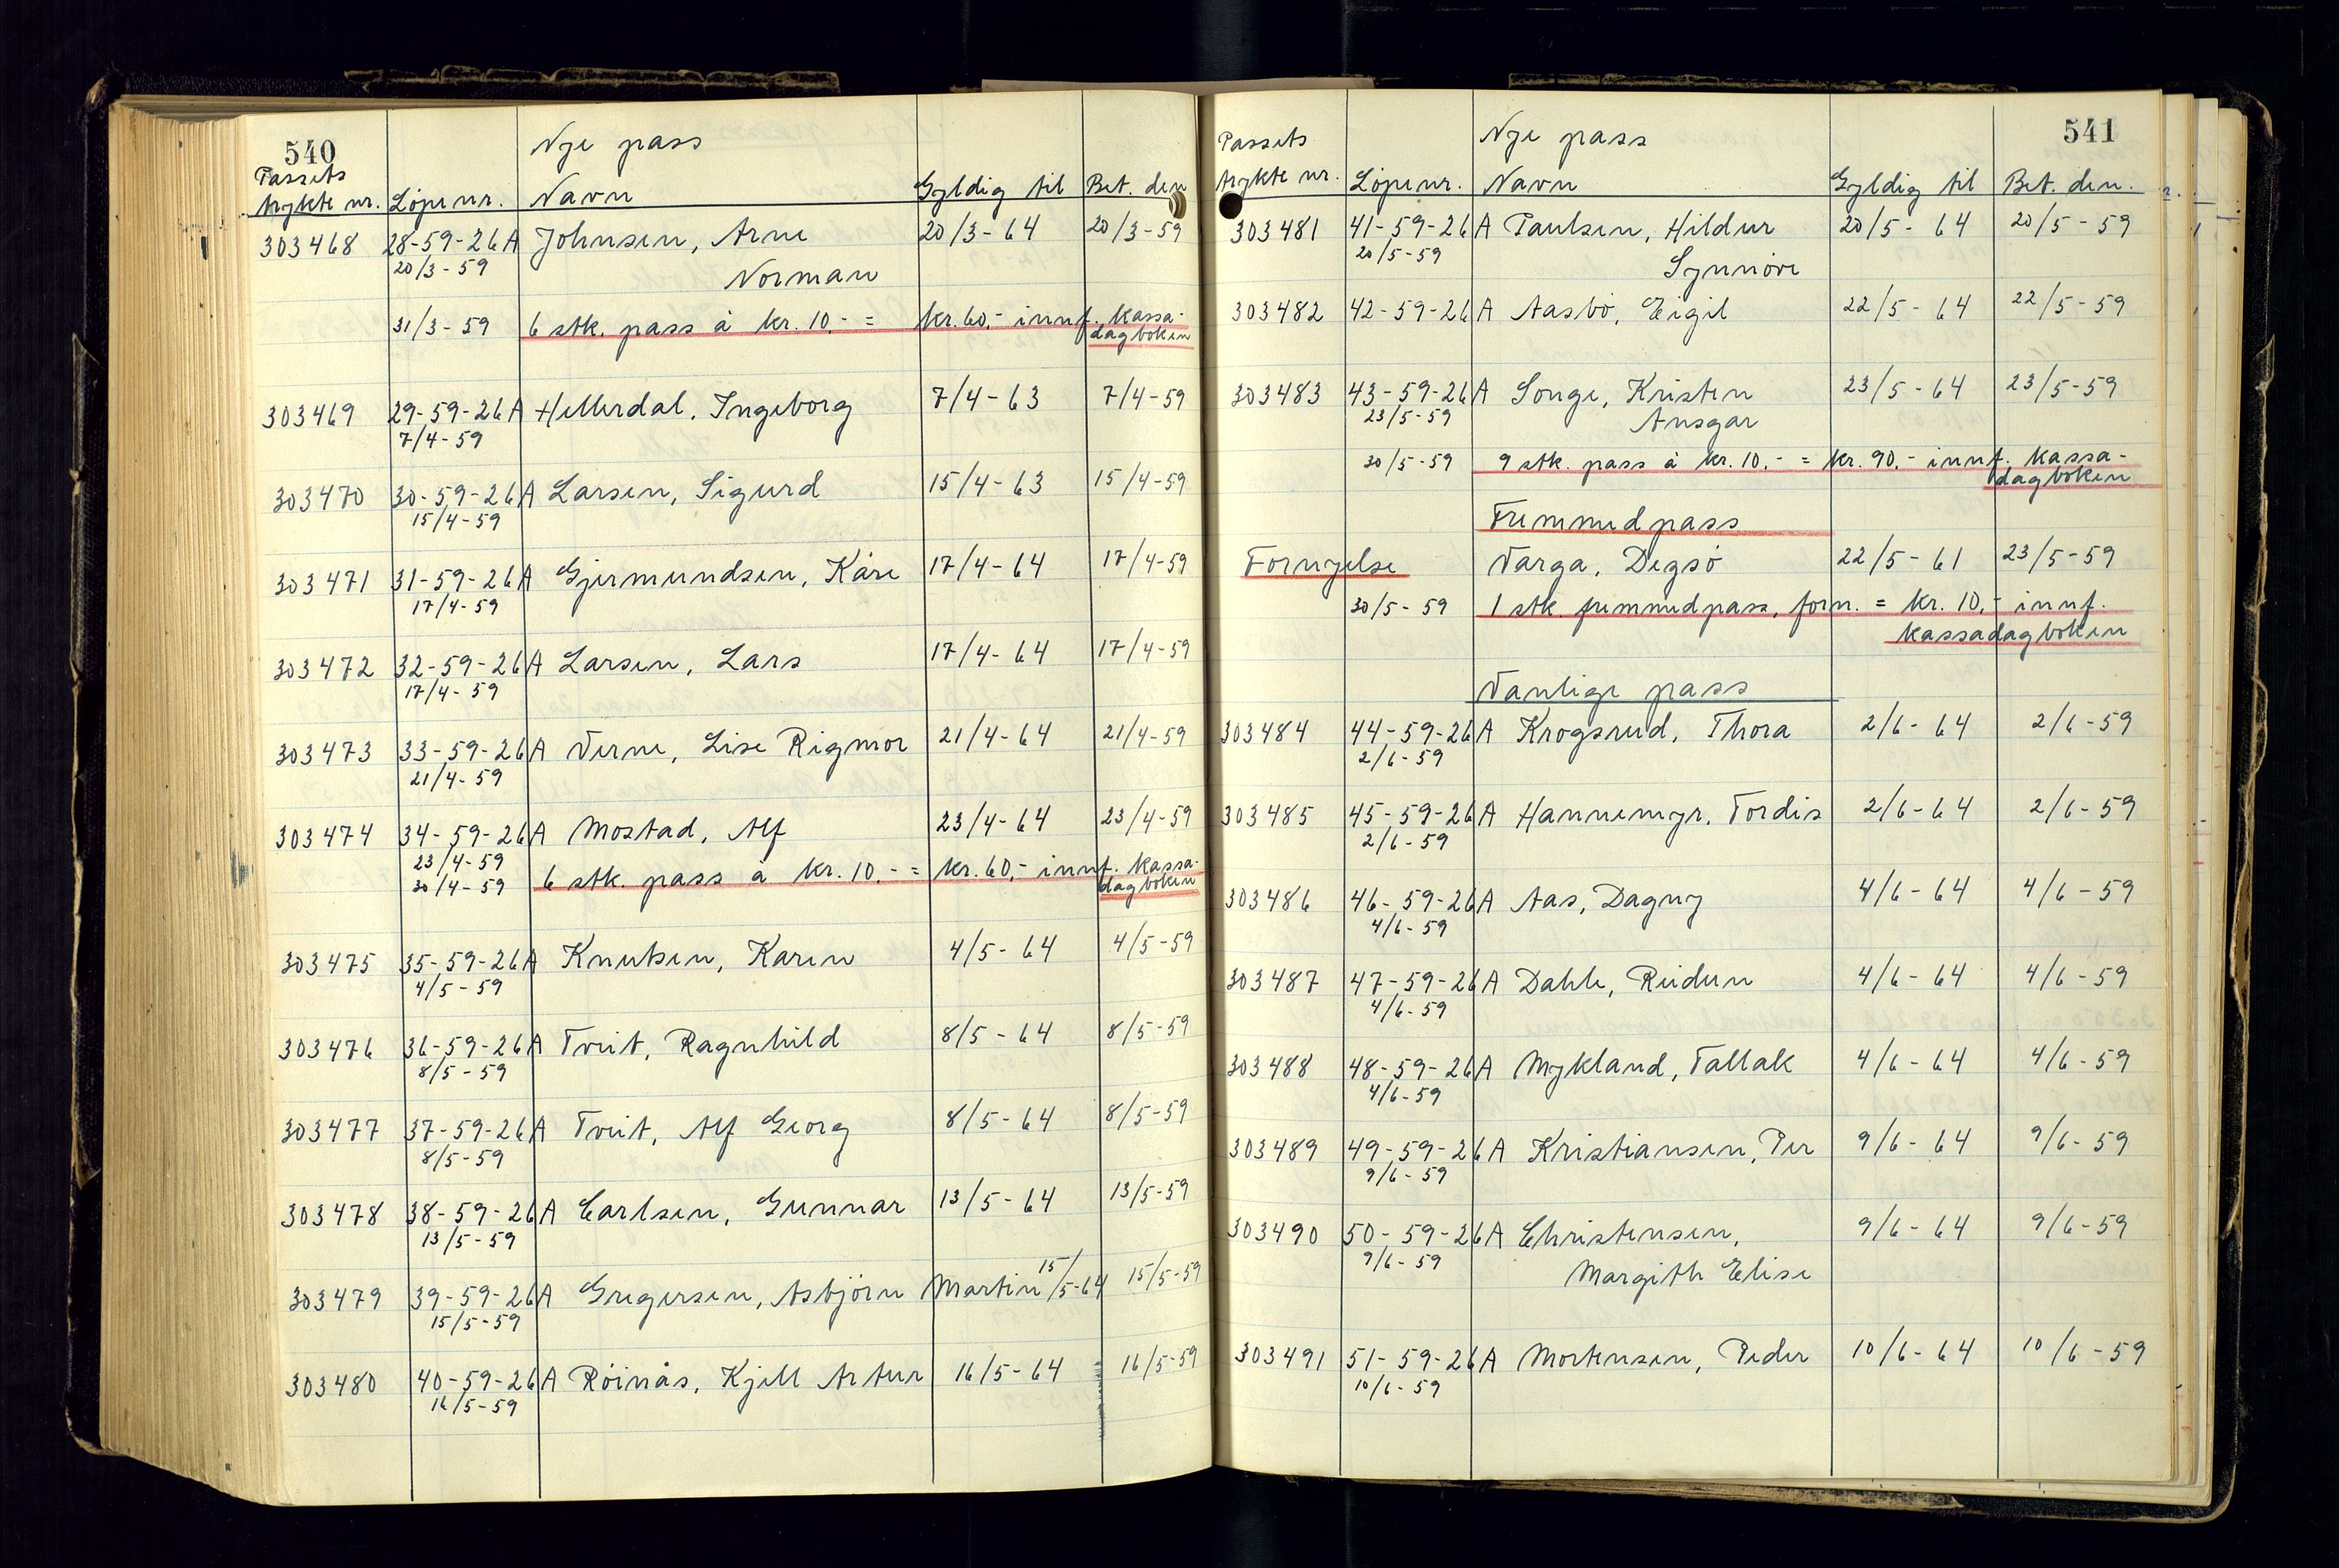 540
Nye pass
Passets
trykte nr. Löpenr. Navn Gyldig til Bet. den
303468 28-59-26A Johnsen, Arne 20/3-64 20/3-59
20/3-59 Norman
31/3-59 6 stk. pass à kr. 10,- = kr. 60,- innf. kassa-
dagboken
303469 29-59-26A Hellerdal, Ingeborg 7/4-63 7/4-59
7/4-59
303470 30-59-26A Larsen, Sigurd 15/4-63 15/4-59
15/4-59
303471 31-59-26A Gjermundsen, Kåre 17/4-64 17/4-59
17/4-59
303472 32-59-26A Larsen, Lars 17/4-64 17/4-59
17/4-59
303473 33-59-26A Verne, Lise Rigmor 21/4-64 21/4-59
21/4-59
303474 34-59-26A Mostad, Alf 23/4-64 23/4-59
23/4-59
30/4-59 6 stk. pass à kr. 10,- = kr. 60,- innf. kassa-
dagboken
303475 35-59-26A Knutsen, Karen 4/5-64 4/5-59
4/5-59
303476 36-59-26A Tveit, Ragnhild 8/5-64 8/5-59
8/5-59
303477 37-59-26A Tveit, Alf Georg 8/5-64 8/5-59
8/5-59
303478 38-59-26A Carlsen, Gunnar 13/5-64 13/5-59
13/5-59
303479 39-59-26A Gregersen, Asbjörn Martin 15/5-64 15/5-59
15/5-59
303480 40-59-26A Röinås, Kjell Artur 16/5-64 16/5-59
16/5-59
541
Nye pass
Passets
trykte nr. Löpenr. Navn Gyldig til Bet. den.
303481 41-59-26A Paulsen, Hildur 20/5-64 20/5-59
20/5-59 Synnöve
303482 42-59-26A Aasbö, Eigil 22/5-64 22/5-59
303483 43-59-26A Songe, Kristen 23/5-64 23/5-59
23/5-59 Ansgar
30/5-59 9 stk. pass à kr. 10,- = kr. 90,- innf. kassa-
dagboken
Fremmedpass
Fornyelse Varga, Degsö 22/5-61 23/5-59
30/5-59 1 stk fremmedpass, forn. = kr. 10,- innf.
kassadagboken
Vanlige pass
303484 44-59-26A Krogsrud, Thora 2/6-64 2/6-59
2/6-59
303485 45-59-26A Hannemyr, Tordis 2/6-64 2/6-59
2/6-59
303486 46-59-26A Aas, Dagny 4/6-64 4/6-59
4/6-59
303487 47-59-26A Dahle, Reidun 4/6-64 4/6-59
4/6-59
303488 48-59-26A Mykland, Tallak 4/6-64 4/6-59
4/6-59
303489 49-59-26A Kristiansen, Per 9/6-64 9/6-59
9/6-59
303490 50-59-26A Christensen, 9/6-64 9/6-59
9/6-59 Margith Elise
303491 51-59-26A Mortensen, Peder 10/6-64 10/6-59
10/6-59